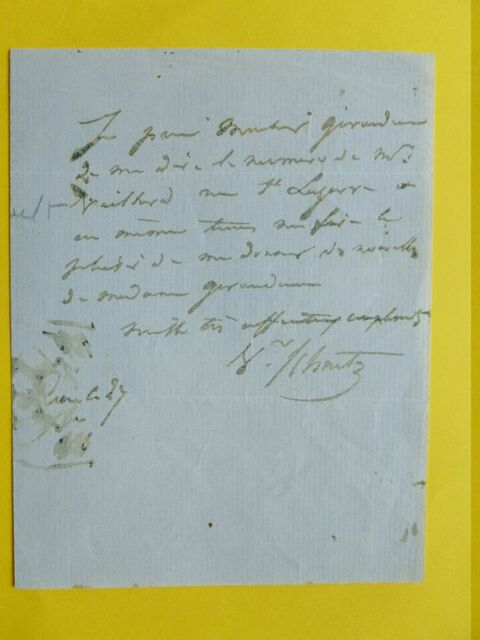 Je prie Monsieur Giraudeau
de me dire le numero de Mr
rue St Lazare &
en même tems me faire le
plaisir de me donner des nouvelles
de madame giraudeau
mille très affectueux compliments
Schnetz
le 27